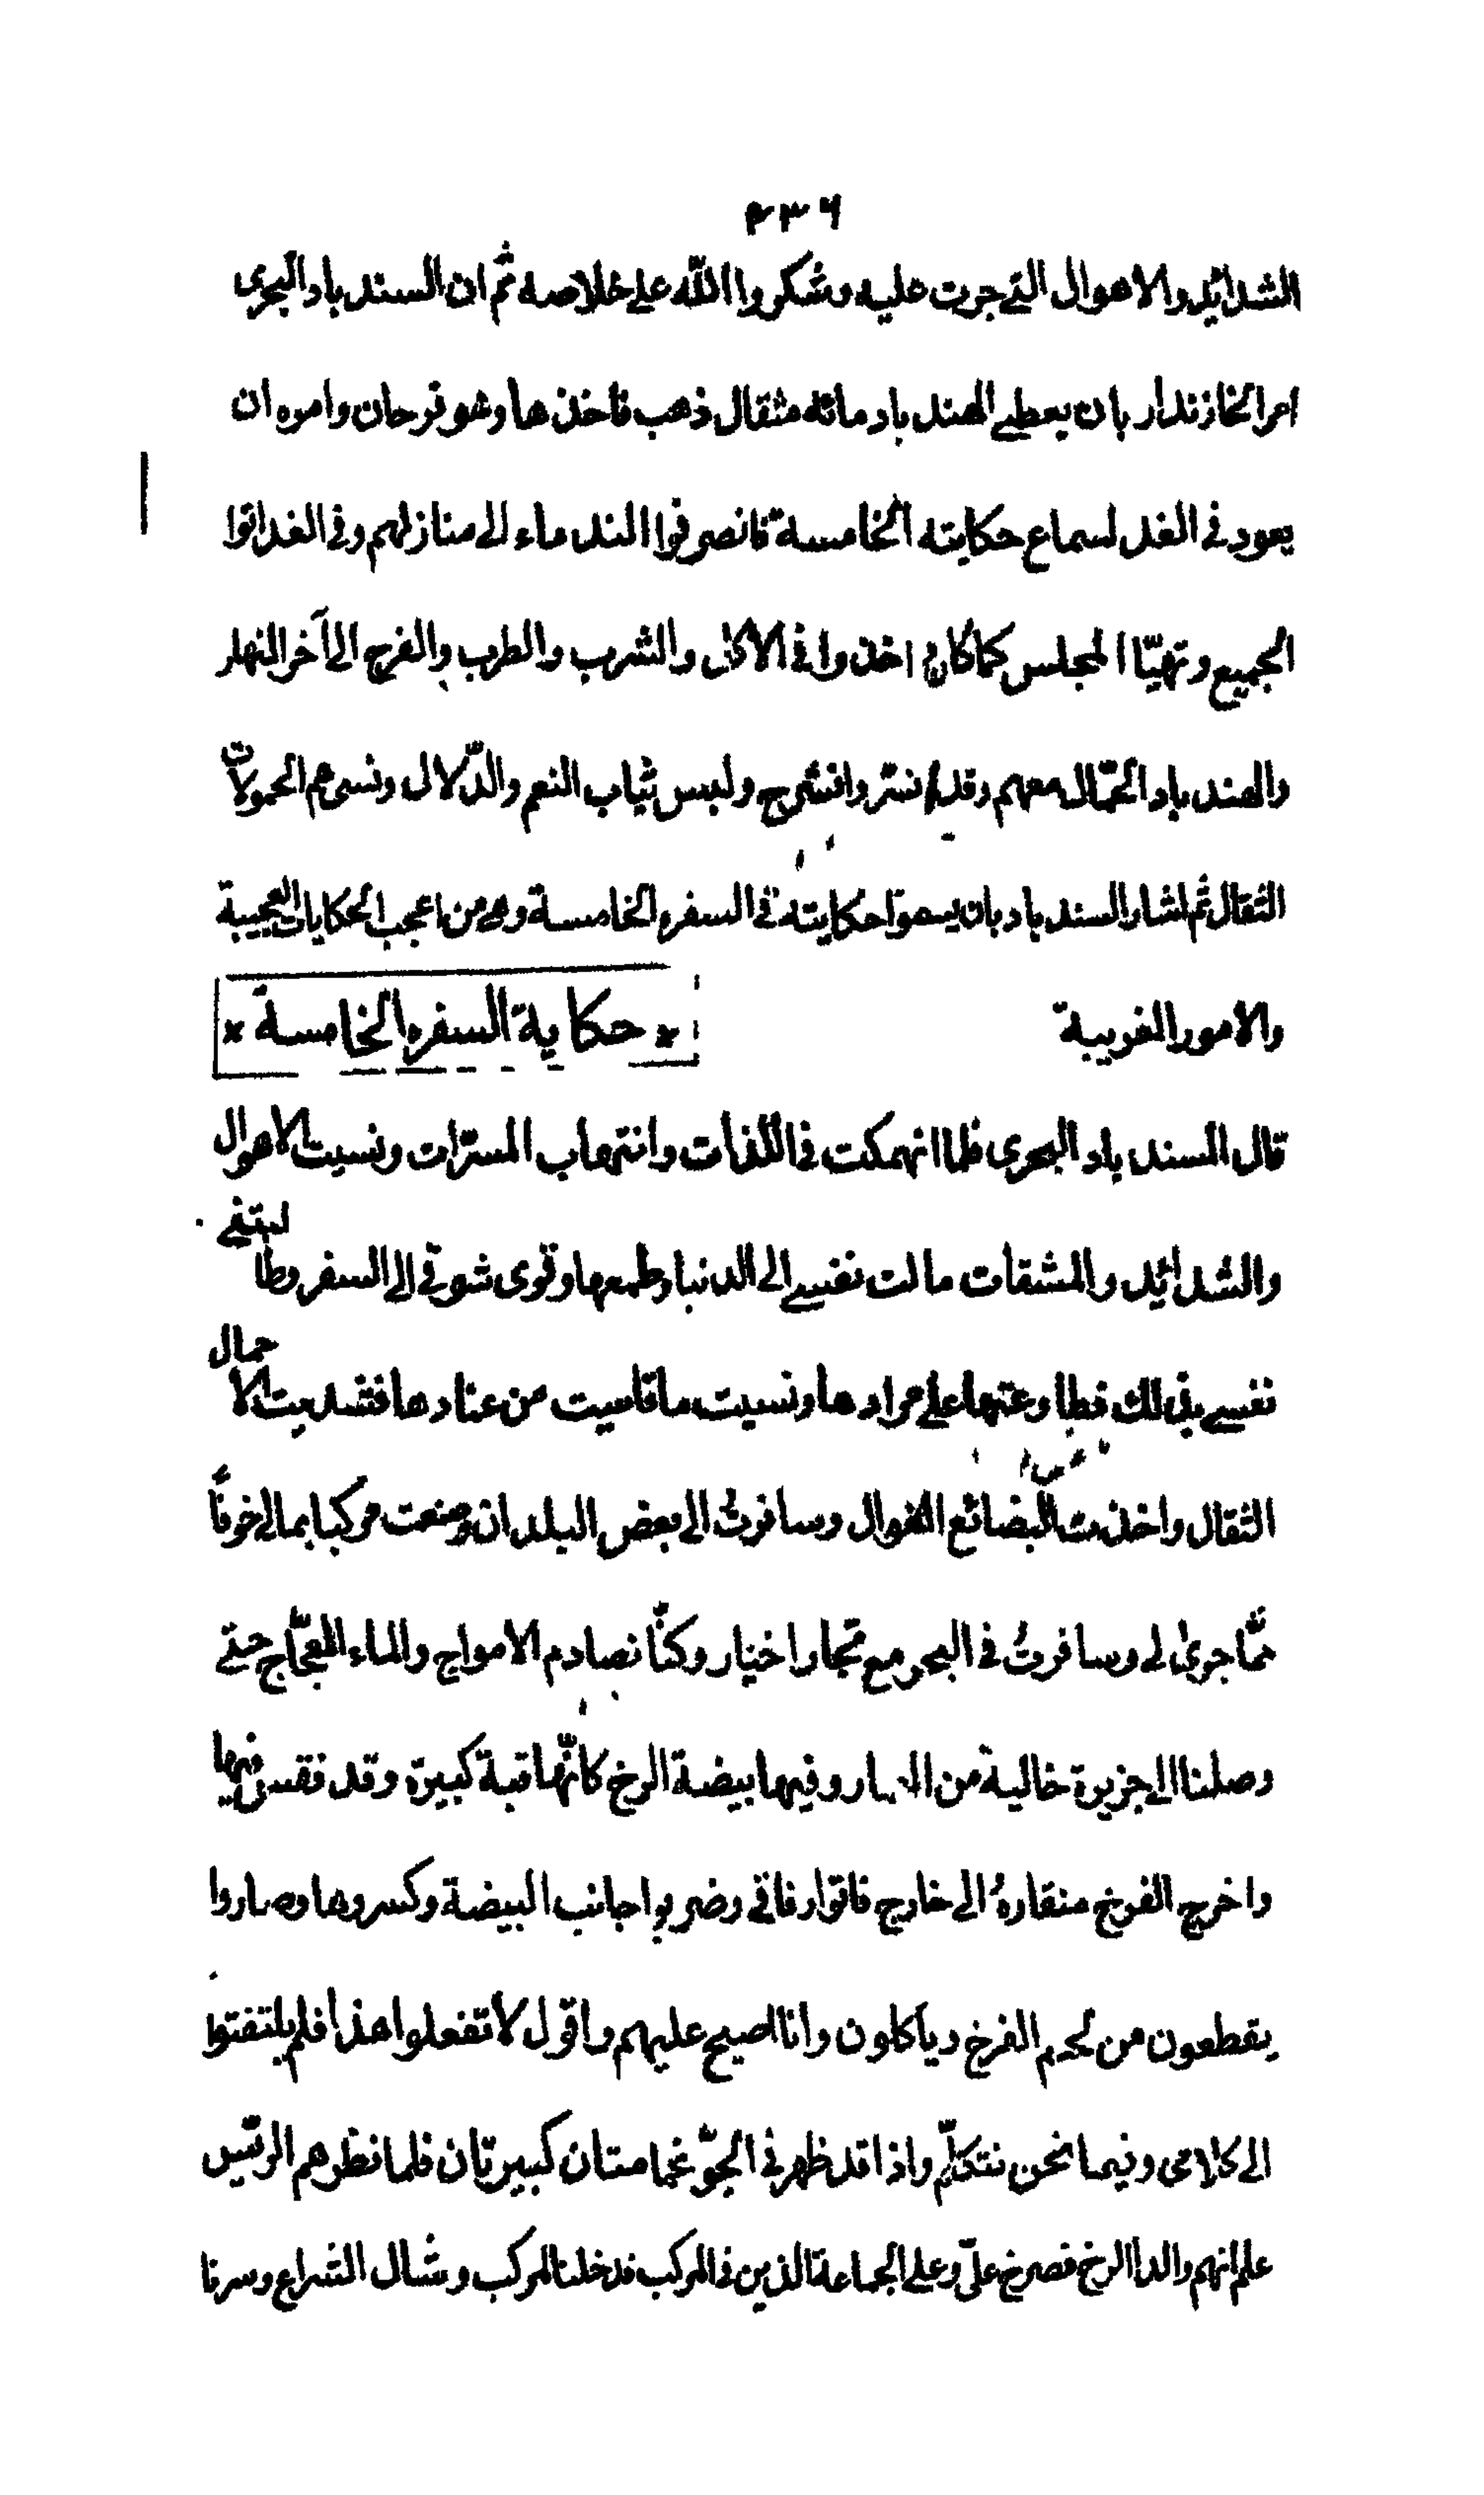 ٣٣٦
الشدائد والاهوال التي جرت عليه وشكروا الله على خلاصه ثم ان السندباد البحري
امر الخازندار بان يعطي الهندباد مائة مثقال ذهب فاخذها وهو فرحان وامره ان
يعود في الغد لسماع حكايته الخامسة فانصرفوا الندماء الى منازلهم وفي الغد اتوا
الجميع وتهيّا المجلس كما كان اخذوا في الاكل والشرب والطرب والفرح الى آخر النهار
والهندباد الحمّال معهم وقد انستر وانشرح ولبس ثياب النعم والدّلال ونسى هم الحمولات
الثقال ثم اشار السندباد بان يسمعوا حكايته في السفره الخامسة وهي من اعجب الحكايات العجيبة
والامور الغريبة
* حكاية السفره الخامسة *
قال السندباد البحري فلما انهمكت في اللذات وانتهاب المسرّات ونسيت الاهوال
والشدائد والمشقات مالت نفسي الى الدنيا وطمعها وقوى شوقي الى السفر وطا لبتني
نفسي بذلك فطاوعتها على مرادها ونسيت ما قاسيت من عنادها فشديت الاحمال
الثقال واخذت البضائع الغوال وسافرتُ الى بعض البلدان وصنعت مركبا بمالي خوفاً
ممّا جرىٰ لي وسافرتُ في البحر مع تجار اخيار وكنّا نصادم الامواج والماء العجّاج حتى
وصلنا الى جزيرة خالية من العمار وفيها بيضة الرخ كأنّها قبة كبيرة وقد نقست فيها
واخرج الفرخ منقارهُ الى خارج فاتوا رفاقي وضربوا جانب البيضة وكسروها وصاروا
يقطعون من لحم الفرخ وياكلون وانا اصيح عليهم واقول لا تفعلوا هذا فلم يلتفتوا
الى كلامي وفيما نحن نتكلّم واذا قد ظهر في الجوّ غمامتان كبيرتان فلما نظرهم الرئيس
علم انهم والدا الرخ فصرخ عليّ وعلى الجماعة الذين في المركب فدخلنا المركب وشال الشراع وسرنا